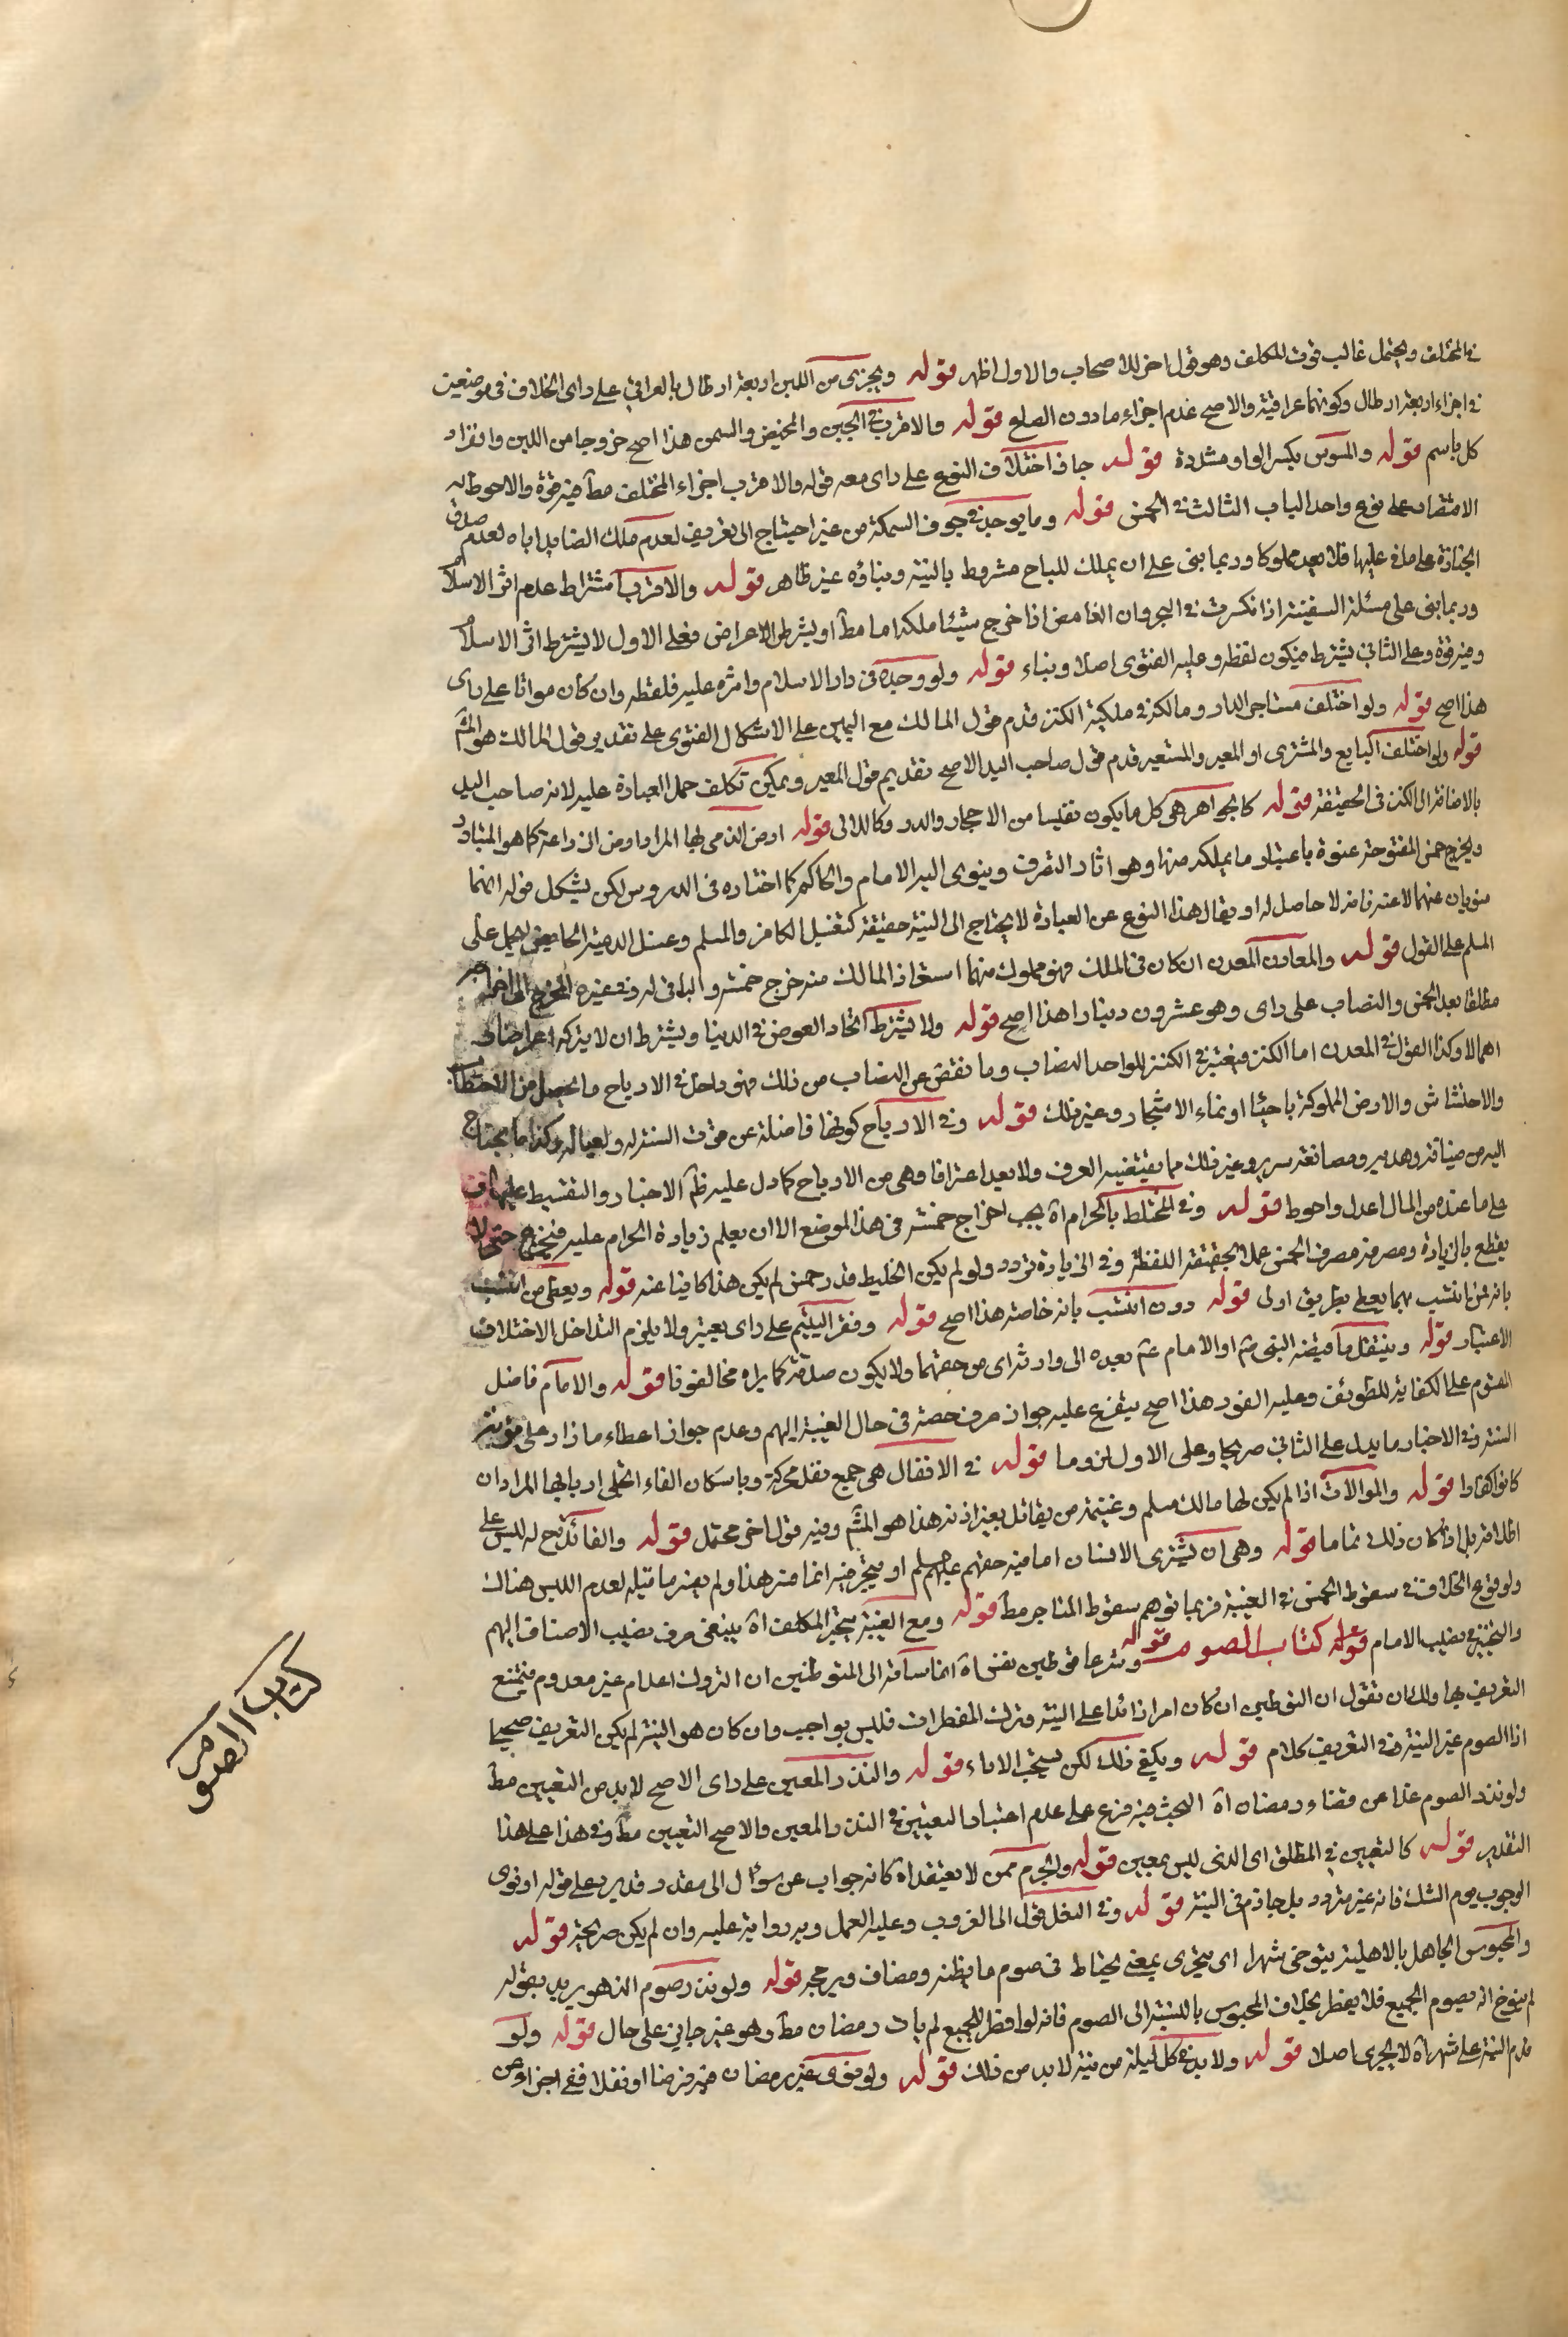 في المخلف ويحتمل غالب قوت المكلف وهو قول اخر للاصحاب والاول اظهر قوله ويجزى من اللبن اربعة ارطال بالعراقي على راى الخلاف في موضعين
في اجزاء اربعة ارطال وكونها عراقية والاصح عدم اجزاء مادون الصاع قوله والاقرب في الجبن والمخيض والسمن هذا اصح خروجا من اللبن وانفراد
كل باسم قوله والمسوس بكسر الواو مشددة قوله جاف اختلاف النوع على راى معه قوله والاقرب اجزاء المختلف مطآ فيه قوة والاحوط
الاقتصار على نوع واحد الباب الثالث في الخمس قوله وما يوجد في جوف السمكة من غير احتياج الى تعريف لعدم ملك الصايد اياه لعدم صدق
الحيازة على ما في عليها فلا يعد مملوكا وربما بنى على ان تملك المباح مشروط بالنية وبناؤه غير ظاهر قوله والاقرب اشتراط عدم اثر الاسلام
وربما بنى على مسئلة السفينة اذا انكسرت في البحر وان الغامض اذا خرج شيئا ملكه اما مطآ او بشرط الاعراض فعلى الاول لا يشترط اثر الاسلام
وفيه قوة وعلى الثاني يشترط فيكون لقطة وعليه الفتوى اصلا وبناء قوله ولو وجده في دار الاسلام واثره عليه فلقطة وان كان مواتا على راى
هذا اصح قوله ولو اختلف مستاجر الدار ومالكه في ملكية الكنز قدم قول المالك مع اليمين على الاشكال الفتوى على تقديم قول المالك هو المشهر
قوله ولو اختلف البايع والمشترى او المعير والمستعير قدم قول صاحب اليد الاصح تقديم قول المعير ويمكن تكلف حمل العبارة عليه لانه صاحب اليد
بالاضافة الى الكنز في الحقيقة قوله كالجواهر هى كل ما يكون نفيسا من الاحجار والدر وكاللالى قوله ارض الذمى لها المراد ارض الزراعة كما هو المتبادر
ويخرج خمس المفتوحة عنوة باعتبار ما يملك منها وهو اثار التصرف وينوى اليه الامام والحاكم كما اختاره في الدروس لكن يشكل قوله انهما
ينويان عنهما لا عنه فانه لا حاصل له او يقال هذا النوع عن العبادة لا يحتاج الى النية حقيقة كتغسيل الكافر والمسلم وغسل الذمية الحايض ليحل على
المسلم على القول قوله والمعادن المعدن ان كان في الملك فهو مملوك منهما استفاد المالك منه خرج خمسه والباقى له وفي غيره المخرج
مطلقا بعد الخمس والنصاب على راى وهو عشرون دينارا هذا اصح قوله ولا يشترط اتحاد العوض في الدنيا ويشترط ان لا يتركه اعراضا
اهمالا وكذا القول في المعدن اما الكنز فيعتبر في الكنز الواحد النصاب وما نقص عن النصاب من ذلك فهو داخل في الارباح وما يحصل من الاحتطاب
والاحتشاش والارض المملوكة باحيا او نماء الاشجار وغير ذلك قوله وفي الارباح كونها فاضلة عن مؤنة السنة له ولعياله وكذا ما يحتاج
اليه من ضيافته وهديه ومصانعة سربه وغير ذلك مما يقتضيه العرف ولا يعد اعترافا وهى من الارباح كما دل عليه ظم الاخبار والتقسيط عليها
على ما عنده من المال اعدل واحوط قوله وفي المختلط بالحرام اة يجب اخراج خمسه في هذا الموضع الا ان يعلم زيادة الحرام عليه فيخرج حتى لا
يقطع بالزيادة ومصرفه مصرف الخمس عملا بحقيقة اللفظ وفي الزيادة تردد ولو لم يكن الخليط قدر خمس لم يكن هذا كافيا عنه قوله ويعطى من انتسب
بانه من انتسب بهما يعطى بطريق اولى قوله دون انتسب بانه خاصة هذا اصح قوله وفقر اليتيم على راى يعتبر ولا يلزم التداخل الاختلاف
الاعتبار قوله وينتقل ما قبضه النبى ص او الامام ع بعده الى وارثه اى من حقهما ولا يكون صدقة كما يراه مخالفونا قوله والامام فاضل
القوم على الكفاية للطوئف وعليه الفور هذا اصح يتفرع عليه جواز صرف حصته في حال الغيبة اليهم وعدم جواز اعطاء مازاد على مؤنته
السنة وفي الاخبار ما يدل على الثاني صريحا وعلى الاول لزوما قوله في الانفال هى جمع نفل محركة وباسكان الفاء انجلى اربابها المراد ان
كانوا كفارا قوله والموالات اذا لم يكن لها مالك مسلم وغنيمة من يقاتل بغير اذنه هذا هو المشهر وفيه قول اخر محتمل قوله والفائدة ح له ليس على
اطلاقه بل اذا كان ذلك تماما قوله وهى ان يشترى الانسان اما فيه حقهم عليهم سلم او يتجر فيه انما فسر هذا ولم يفسر ما قبله لعدم اللبس هناك
ولوقوع الخلاف في سقوط الخمس في الغيبة فربما توهم سقوط المتاجر مطآ قوله ومع الغيبة يتخير المكلف اة ينبغى صرف نصيب الاصناف اليهم
والتخيير في نصيب الامام قوله كتاب الصوم قوله وشرعا توطين نفس اة اغناسة الى المتوطنين ان التروك اعدام غير معدوم فيمتنع
التعريف بها ولك ان تقول ان التوطين ان كان امرا زائدا على النية وترك المفطرات فليس بواجب وان كان هو النية لم يكن التعريف صحيحا
اذا الصوم غير النية وفي التعريف كلام قوله ويكفى ذلك لكن يستحب الاداء قوله والنذر المعين على راى الاصح لا بد من التعيين مطآ
ولو نذر الصوم غدا عن قضاء رمضان اة البحث فيه فرع على عدم اعتبار التعيين في النذر المعين والاصح التعيين مطآ وفي هذا على هذا
التقدير قوله كالتعيين في المطلق اى الذى ليس بمعين قوله والجزم ممن لا يعتقد اة كانه جواب عن سؤال الى مقدر وقدير على قوله او نوى
الوجوب يوم الشك فانه غير متردد بل جازم في النية قوله وفي النفل قول الى الغروب وعليه العمل وبه رواية عليه وان لم يكن صريحة قوله
والمحبوس الجاهل بالاهلية يتوخى شهرا اى يتحرى بمعنى يحتاط في صوم ما يظنه رمضان ويرجحه قوله ولو نذر صوم الدهر يريد بقوله
لم يتوخ انه يصوم الجميع فلا يفطر بخلاف المحبوس بالنسبة الى الصوم فانه لو افطر الجميع لم يات رمضان مطآ وهو غير جايز على حال قوله ولو
قدم النية على شهر اة لا يجرى اصلا قوله ولا بد في كل ليلة من نية لا بد من ذلك قوله ولو نوى غير رمضان فيه فرضا او نفلا ففى اجزاؤه من
كتاب الصوم